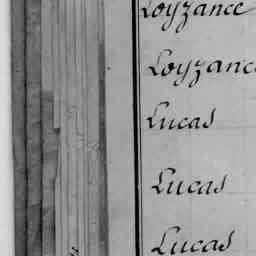 Loyzance
Loyzance
Lucas
Lucas
Lucas